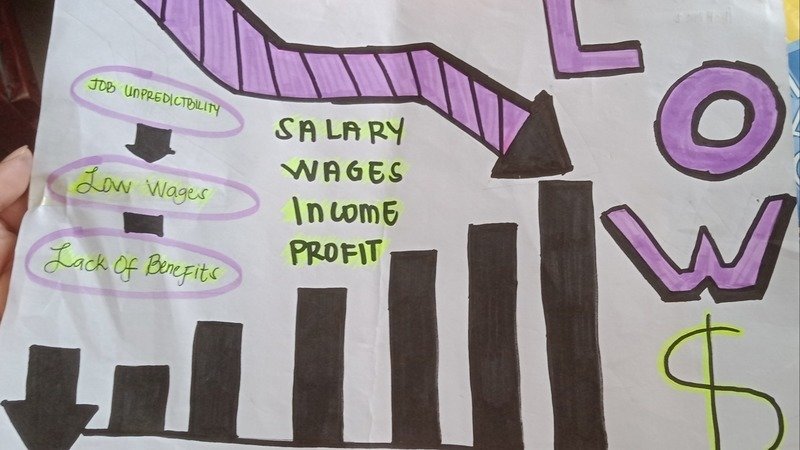 JOB UNPREDICTBILITY
Low Wages
Lack Of Benefits
SALARY
WAGES
InComE
PROFIT
L
O
W
$